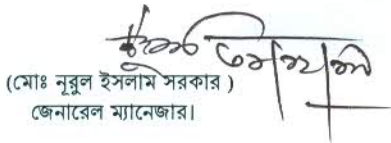 (মোঃ নূরুল ইসলাম সরকার )
জেনারেল ম্যানেজার।